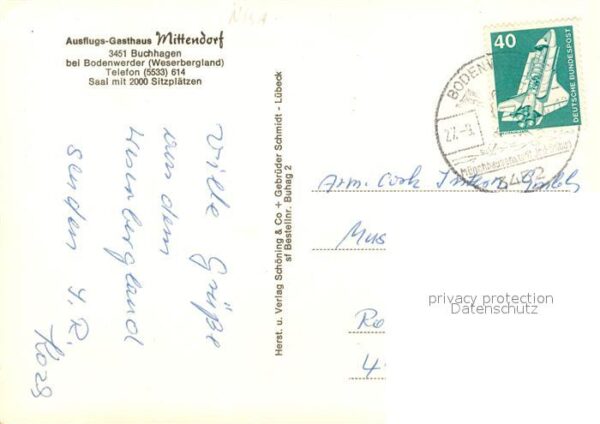 Ausflugs-Gasthaus Mittendorf
3451 Buchhagen
bei Bodenwerder (Weserbergland)
Telefon (5533) 614
Saal mit 2000 Sitzplätzen
Viele Grüße
aus dem
Weserbergland
senden
Herst. u. Verlag Schöning & Co + Gebrüder Schmidt - Lübeck
sf Bestellnr. Buhag 2
40
DEUTSCHE BUNDESPOST
BODENW
27.-9.
3452
Arm. Cook Inter GmbH
Mus
Ro
4
privacy protection
Datenschutz